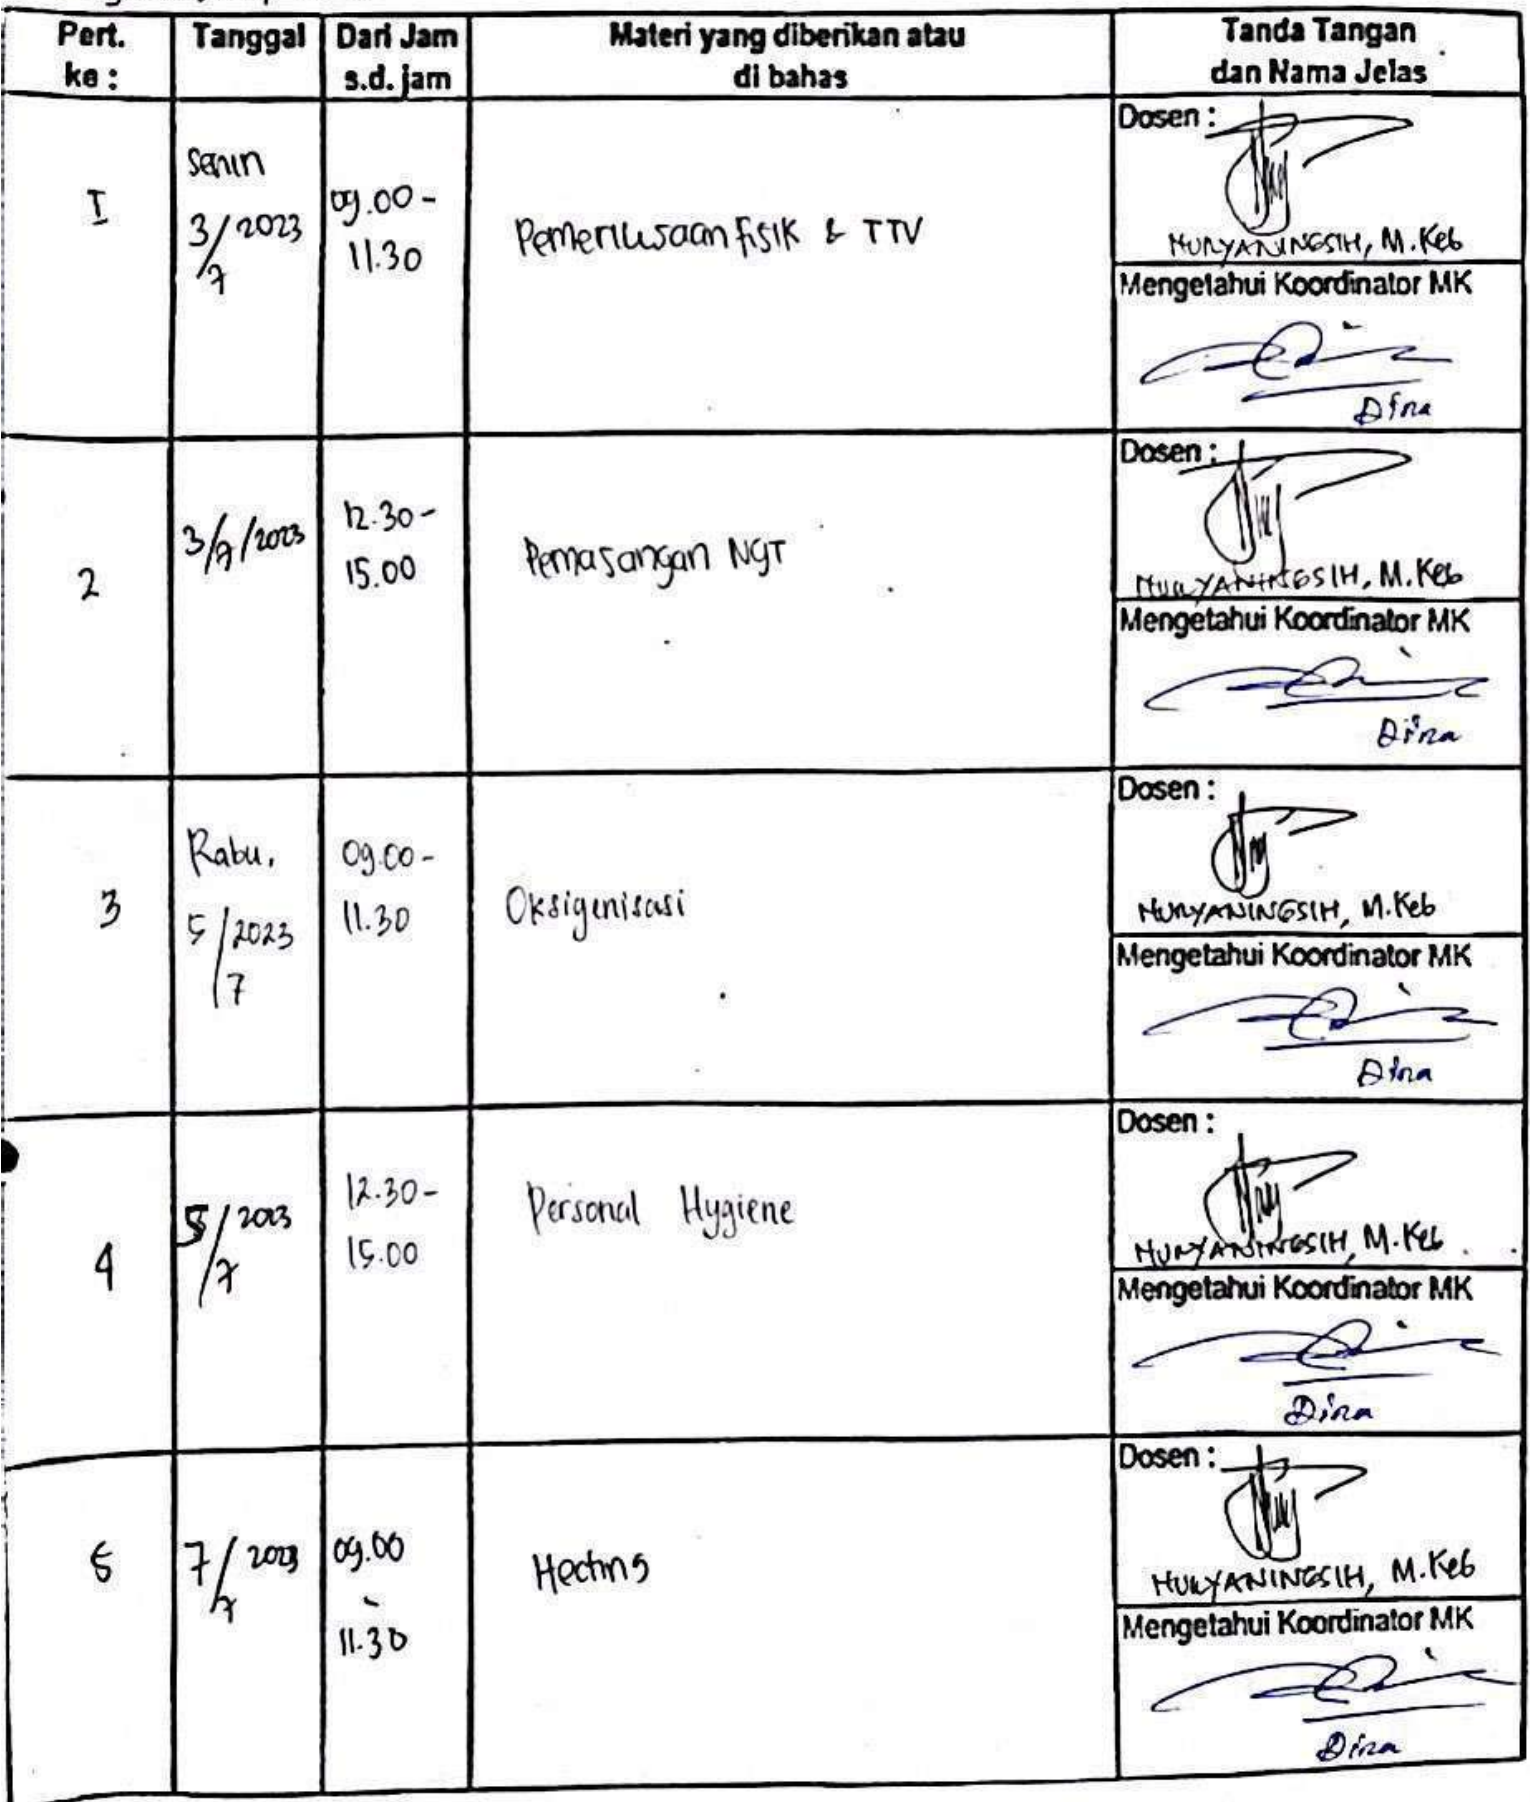 Pert. ke :
Tanggal
Dari Jam s.d. jam
Materi yang diberikan atau di bahas
Tanda Tangan dan Nama Jelas
I
Senin
3/7 2023
09.00 -
11.30
Pemeriksaan fisik & TTV
Dosen :
NURYANINGSIH, M.Keb
Mengetahui Koordinator MK
Dina
2
3/7/2023
12.30 -
15.00
Pemasangan NGT
Dosen :
NURYANINGSIH, M.Keb
Mengetahui Koordinator MK
Dina
3
Rabu,
5/7 2023
09.00 -
11.30
Oksigenisasi
Dosen :
NURYANINGSIH, M.Keb
Mengetahui Koordinator MK
Dina
4
5/7 2023
12.30 -
15.00
Personal Hygiene
Dosen :
NURYANINGSIH, M.Keb
Mengetahui Koordinator MK
Dina
5
7/7 2023
09.00
-
11.30
Hecting
Dosen :
NURYANINGSIH, M.Keb
Mengetahui Koordinator MK
Dina